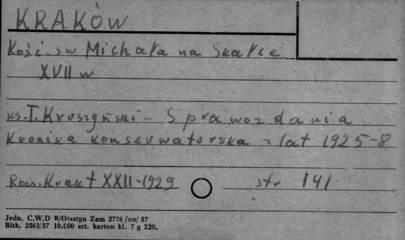 KRAKÓW
Kość. św Michała na Skałce
XVII w
ks. T. Kruszyński - Sprawozdania
Kronika konserwatorska z lat 1925-8
Rocz. Krak t XXII-1929 str 141
Jedn. C.W.D R/Olsztyn Zam 2776/on/57
Błtk. 2563/57 10.000 szt. karton kl. 7 g 220.